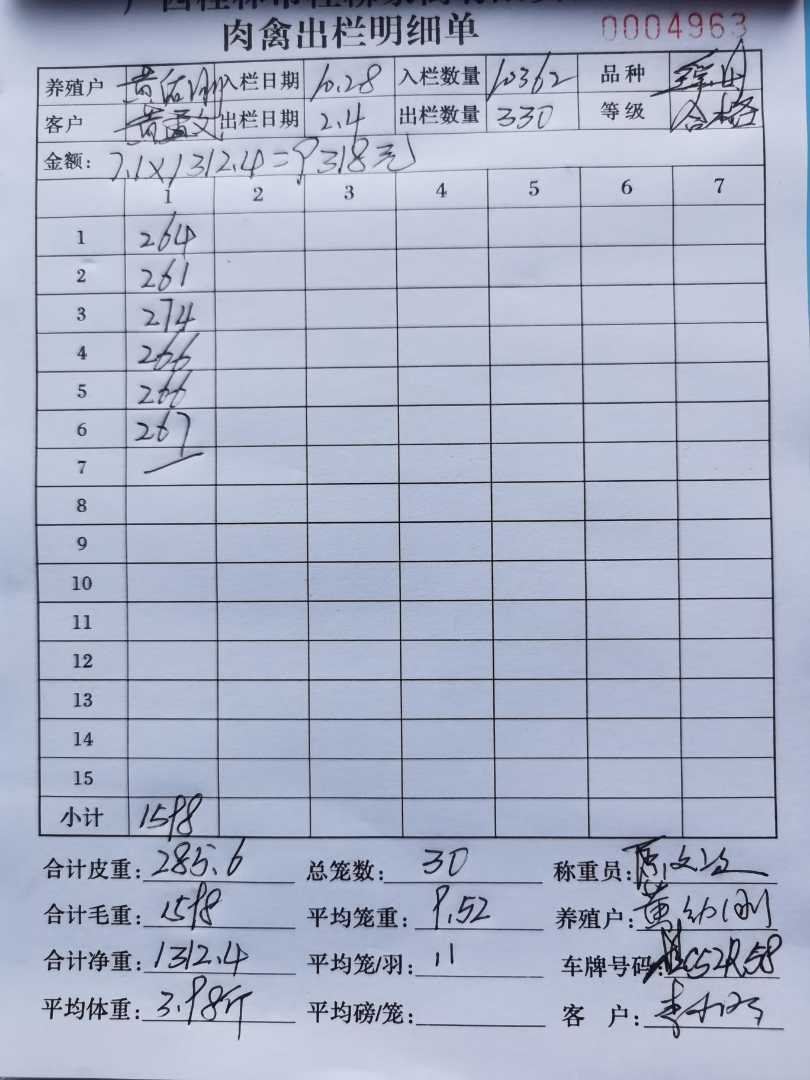 肉禽出栏明细单 0004963
养殖户 入栏日期 10.28 入栏数量 10362 品种
客户 出栏日期 2.4 出栏数量 330 等级 合格
金额: 7.1×1312.4=9318元
1 2 3 4 5 6 7
1 264
2 261
3 274
4 266
5 266
6 267
7
8
9
10
11
12
13
14
15
小计 1598
合计皮重: 285.6 总笼数: 30 称重员:
合计毛重: 1598 平均笼重: 9.52 养殖户: 黄
合计净重: 1312.4 平均笼/羽: 11 车牌号码:
平均体重: 3.98斤 平均磅/笼: 客 户: